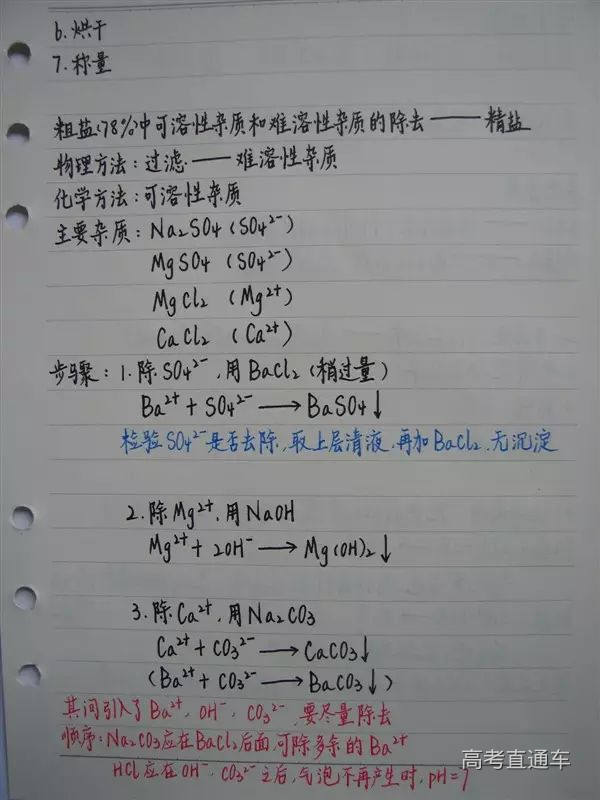 6.烘干
7.称量
粗盐(78%)中可溶性杂质和难溶性杂质的除去——精盐
物理方法：过滤——难溶性杂质
化学方法：可溶性杂质
主要杂质：Na₂SO₄ (SO₄²⁻)
MgSO₄ (SO₄²⁻)
MgCl₂ (Mg²⁺)
CaCl₂ (Ca²⁺)
步骤：1.除SO₄²⁻,用BaCl₂(稍过量)
Ba²⁺+SO₄²⁻→BaSO₄↓
检验SO₄²⁻是否去除,取上层清液,再加BaCl₂,无沉淀
2.除Mg²⁺,用NaOH
Mg²⁺+2OH⁻→Mg(OH)₂↓
3.除Ca²⁺,用Na₂CO₃
Ca²⁺+CO₃²⁻→CaCO₃↓
(Ba²⁺+CO₃²⁻→BaCO₃↓)
其间引入了Ba²⁺、OH⁻、CO₃²⁻,要尽量除去
顺序:Na₂CO₃应在BaCl₂后面,可除多余的Ba²⁺
HCl应在OH⁻、CO₃²⁻之后,气泡不再产生时,pH=7
高考直通车